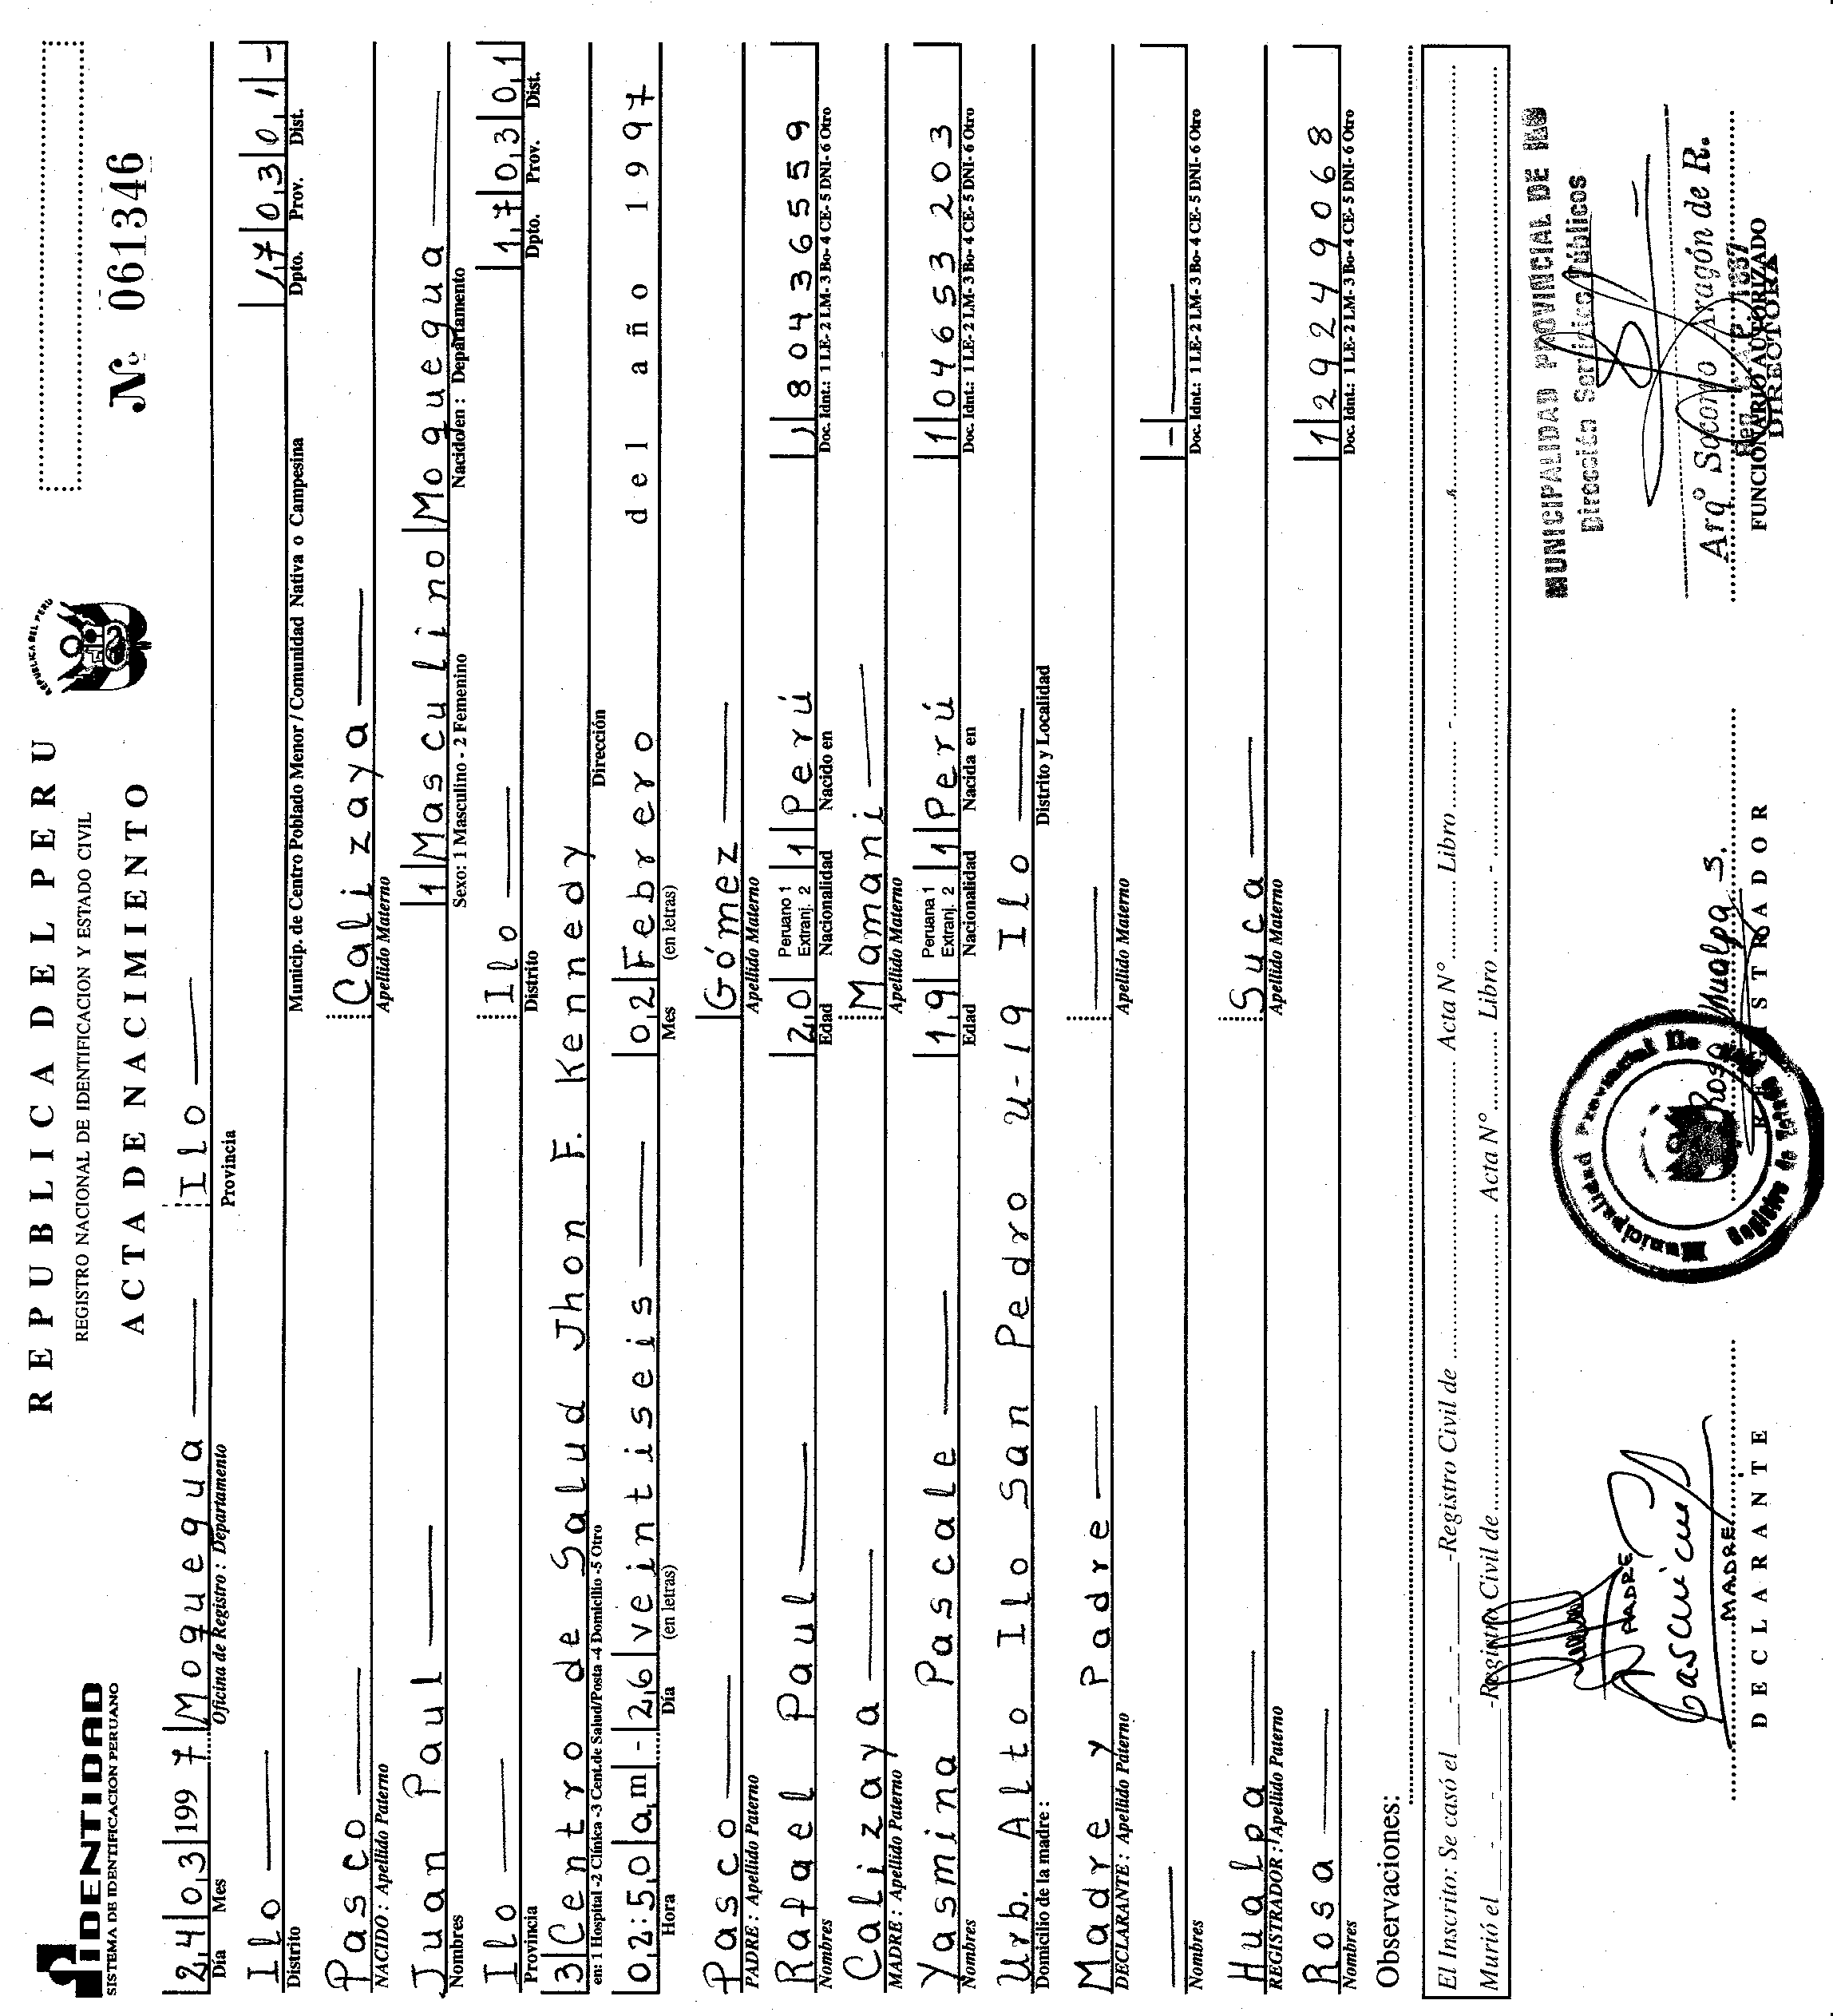 IDENTIDAD
SISTEMA DE IDENTIFICACION PERUANO
REPUBLICA DEL PERU
REGISTRO NACIONAL DE IDENTIFICACION Y ESTADO CIVIL
ACTA DE NACIMIENTO
REPUBLICA DEL PERU
Nº 061346
24 03 1997 Moquegua Ilo
Día Mes Oficina de Registro : Departamento Provincia
Ilo 17 03 01 -
Distrito Municip. de Centro Poblado Menor / Comunidad Nativa o Campesina Dpto. Prov. Dist.
Pasco Calizaya
NACIDO : Apellido Paterno Apellido Materno
Juan Paul 1 Masculino Moquegua
Nombres Sexo: 1 Masculino - 2 Femenino Nacido en : Departamento
Ilo Ilo 17 03 01
Provincia Distrito Dpto. Prov. Dist.
3 Centro de Salud Jhon F. Kennedy
en: 1 Hospital -2 Clínica -3 Cent.de Salud/Posta -4 Domicilio -5 Otro Dirección
02:50 am - 26 veintiseis 02 Febrero del año 1997
Hora Día (en letras) Mes (en letras)
Pasco Gómez
PADRE : Apellido Paterno Apellido Materno
Rafael Paul 20 Peruano 1 Extranj. 2 1 Perú 1 80436559
Nombres Edad Nacionalidad Nacido en Doc. Idnt.: 1 LE- 2 LM- 3 Bo- 4 CE- 5 DNI- 6 Otro
Calizaya Mamani
MADRE : Apellido Paterno Apellido Materno
Yasmina Pascale 19 Peruana 1 Extranj. 2 1 Perú 1 04653203
Nombres Edad Nacionalidad Nacida en Doc. Idnt.: 1 LE- 2 LM- 3 Bo- 4 CE- 5 DNI- 6 Otro
Urb. Alto Ilo San Pedro U-19 Ilo
Domicilio de la madre : Distrito y Localidad
Madre y Padre
DECLARANTE : Apellido Paterno Apellido Materno
-
Nombres Doc. Idnt.: 1 LE- 2 LM- 3 Bo- 4 CE- 5 DNI- 6 Otro
Hualpa Suca
REGISTRADOR : Apellido Paterno Apellido Materno
Rosa 1 29249068
Nombres Doc. Idnt.: 1 LE- 2 LM- 3 Bo- 4 CE- 5 DNI- 6 Otro
Observaciones:
El Inscrito: Se casó el - - -Registro Civil de Acta Nº Libro -
Murió el - - -Registro Civil de Acta Nº Libro -
MUNICIPALIDAD PROVINCIAL DE ILO
Dirección Servicios Públicos
PADRE
MADRE
DECLARANTE
Municipalidad Provincial De
Rosa Hualpa S.
REGISTRADOR
Arqº Socorro Aragón de R.
FUNCIONARIO AUTORIZADO
DIRECTORA